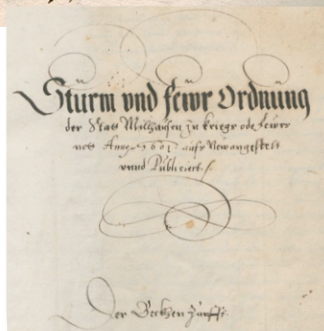 Sturm vnd fewr Ordnung
der Statt Milhausen zu kriegs ode fewrs
not Anno 1601 aufs New angestelt
vnnd Publiciert
Der Becken Zunfft